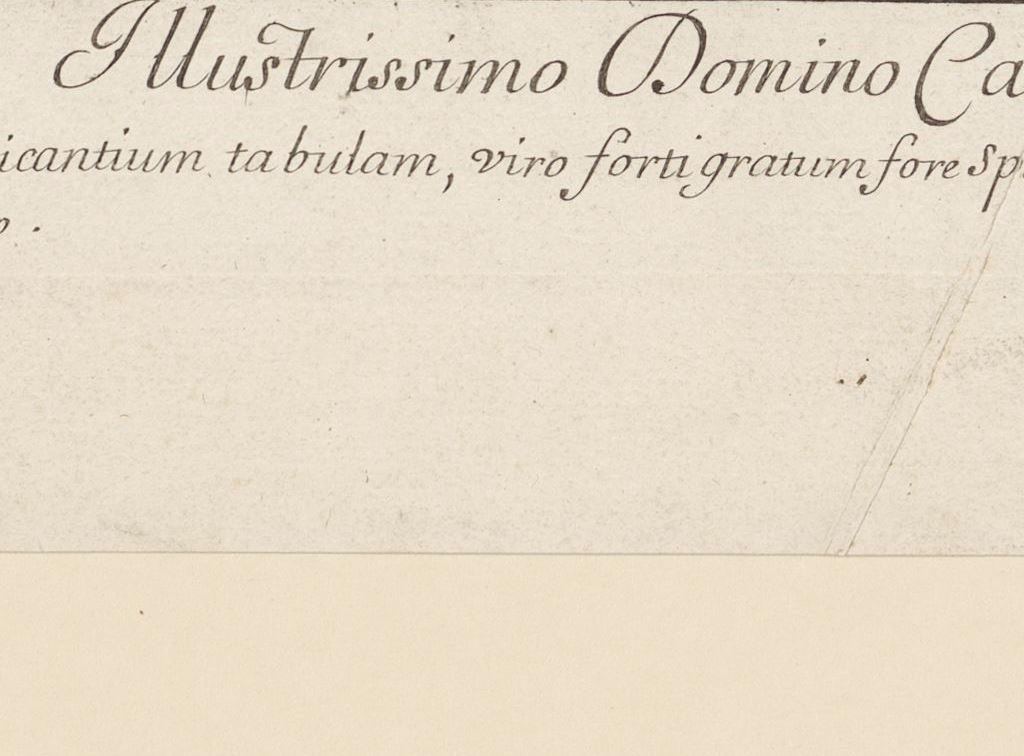 Illustrissimo Domino Ca
icantium tabulam, viro forti gratum fore sp